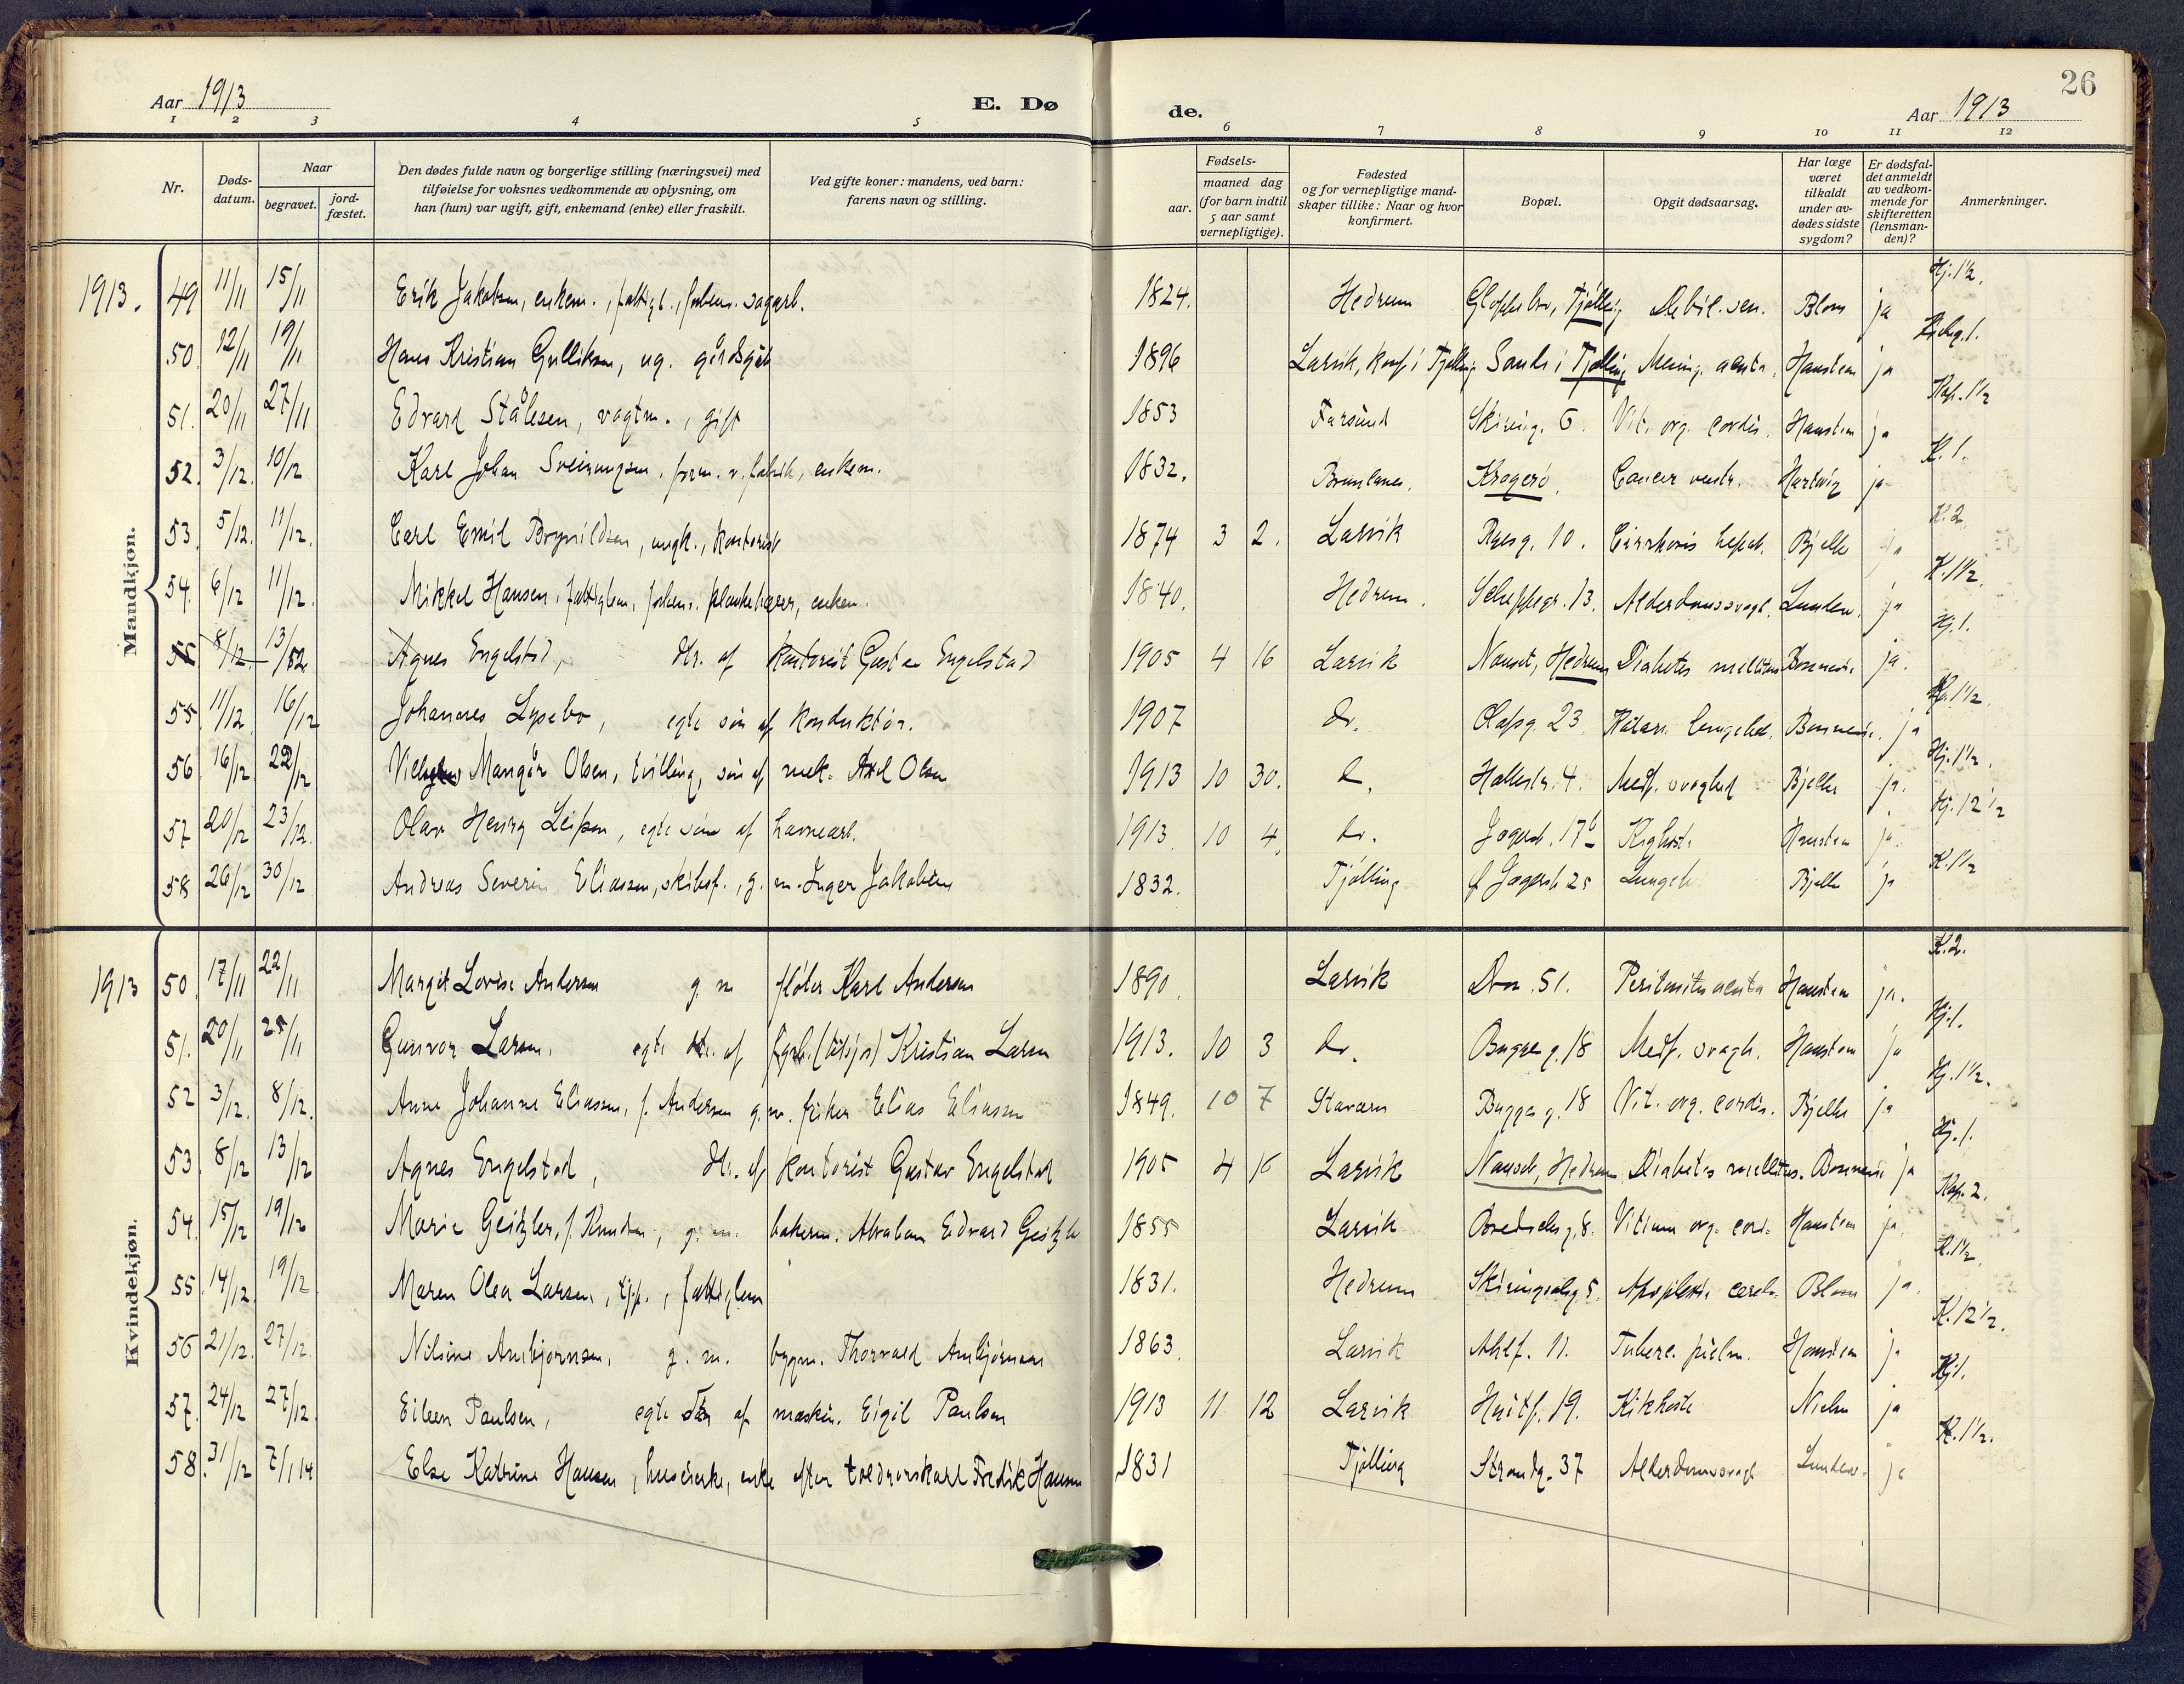 26
Aar 1913 E. Dø de. Aar 1913
1 2 3 4 5 6 7 8 9 10 11 12
Nr.
Døds-datum.
Naar
begravet.
jord-fæstet.
Den dødes fulde navn og borgerlige stilling (næringsvei) med
tilføielse for voksnes vedkommende av oplysning, om
han (hun) var ugift, gift, enkemand (enke) eller fraskilt.
Ved gifte koner: mandens, ved barn:
farens navn og stilling.
Fødsels-
aar.
maaned dag
(for barn indtil
5 aar samt
vernepligtige).
Fødested
og for vernepligtige mand-
skaper tillike: Naar og hvor
konfirmert.
Bopæl.
Opgit dødsaarsag.
Har læge
været
tilkaldt
under av-
dødes sidste
sygdom?
Er dødsfal-
det anmeldt
av vedkom-
mende for
skifteretten
(lensman-
den)?
Anmerkninger.
Mandkjøn.
1913. 49 11/11 15/11 Erik Jakobsen, enkem., fattigl., forhenv. sagarb. 1824. Hedrum Tjølling Debil. sen. Blom ja Hj. 1½.
50. 12/11 19/11 Hans Kristian Gulliksen, ug. 1896 Larvik, konf. i Tjølling Sande i Tjølling Mening. acuta. Hansteen ja
51. 20/11 27/11 Edvard Ståleson, vagtm., gift 1853 Farsund Skiring. 6. Vit. org. cordis. Hansteen ja Kap. 1½
52. 3/12. 10/12 Karl Johan Sveinungsen, form. v. fabrik, enkem. 1832. Brunlanes. Kragerø. Cancer ventr. Hartvig ja K. 1.
53. 5/12. 11/12. Carl Emil Brynildsen, ungk., kontorist 1874 3 2. Larvik 10. Cirrhosis hepat. Bjelke ja K. 2.
54. 6/12 11/12. Mikkel Hansen, fattiglem, forhenv. plankebærer, enkem. 1840. Hedrum. 13. Alderdomssvagh. Lunden. ja K. 1½.
55. 8/12. 13/12. Agnes Engelstad, dtr. af kontorist Gustav Engelstad 1905 4 16 Larvik Nanset, Hedrum Diabetes mellitus Bonnevie ja. Hj. 1.
55. 11/12 16/12 Johannes Lysebo, egte søn af konduktør. 1907 do. Olafsg. 23. Katarr. Bonnevie. ja 1½.
56. 16/12. 22/12 Mangår Olsen, tvilling, søn af mek. Axel Olsen 1913 10 30. do. 4. Medf. svaghed Bjelke ja. Hj. 1½.
57 20/12 23/12. Olav Henry egte søn af havnearb. 1913. 10 4. do. Jegersb. 17b Kighoste Hansteen ja. Hj. 12½
58 26/12 30/12 Andreas Severin Eliassen, skibsf., g. m. Inger Jakobsen 1832. Tjølling Jegersb. 25 Bjelke ja K. 1½
Kvindekjøn.
1913 50. 17/11 22/11 Margit Lovise Andersen g. m. fløter Karl Andersen 1890. Larvik 51. Peritonitis acuta Hansteen ja. K. 2.
51. 20/11 25/11 Gunvor Larsen, egte dtr. af Kristian Larsen 1913. 10 3 do. Bugges g. 18 Medf. svagh. Hansteen ja Hj. 1.
52 3/12. 8/12. Anne Johanne Eliassen, f. Andersen g. m. fisker Elias Eliassen 1849. 10 7 Stavern Bugges g. 18 Vit. org. cordis. Bjelke ja Hj. 1½.
53. 8/12 13/12 Agnes Engelstad, dtr. af kontorist Gustav Engelstad 1905 4 16 Larvik Nanset, Hedrum Diabetes mellitus. Bonnevie ja Hj. 1.
54. 15/12 19/12 Marie Geitzler, f. Knudsen, g. m. bakerm. Abraham Edvard Geitzler 1855 Larvik 8. Vitium org. cord. Hansteen ja. Kap. 2.
55 14/12. 19/12. Maren Olea Larsen, fattiglem 1831. Hedrum Skiringsalsg. 5. Apoplexia cerebr. Blom ja. K. 1½.
56 21/12. 27/12. Nilsine Ambjørnsen, g. m. bygm. Thorvald Ambjørnsen 1863. Larvik 11. Tuberc. pulm. Hansteen ja K. 12½.
57. 24/12 27/12. Eileen Paulsen, egte dtr. af maskin. Eigil Paulsen 1913 11 12 Larvik 19. Kikhoste ja Hj. 1.
58. 31/12 7/1 14 Else Katrine Hansen, enke efter Fredrik Hansen 1831 Tjølling Strandg. 37 Alderdomssvagh. Lunden. ja K. 1½.